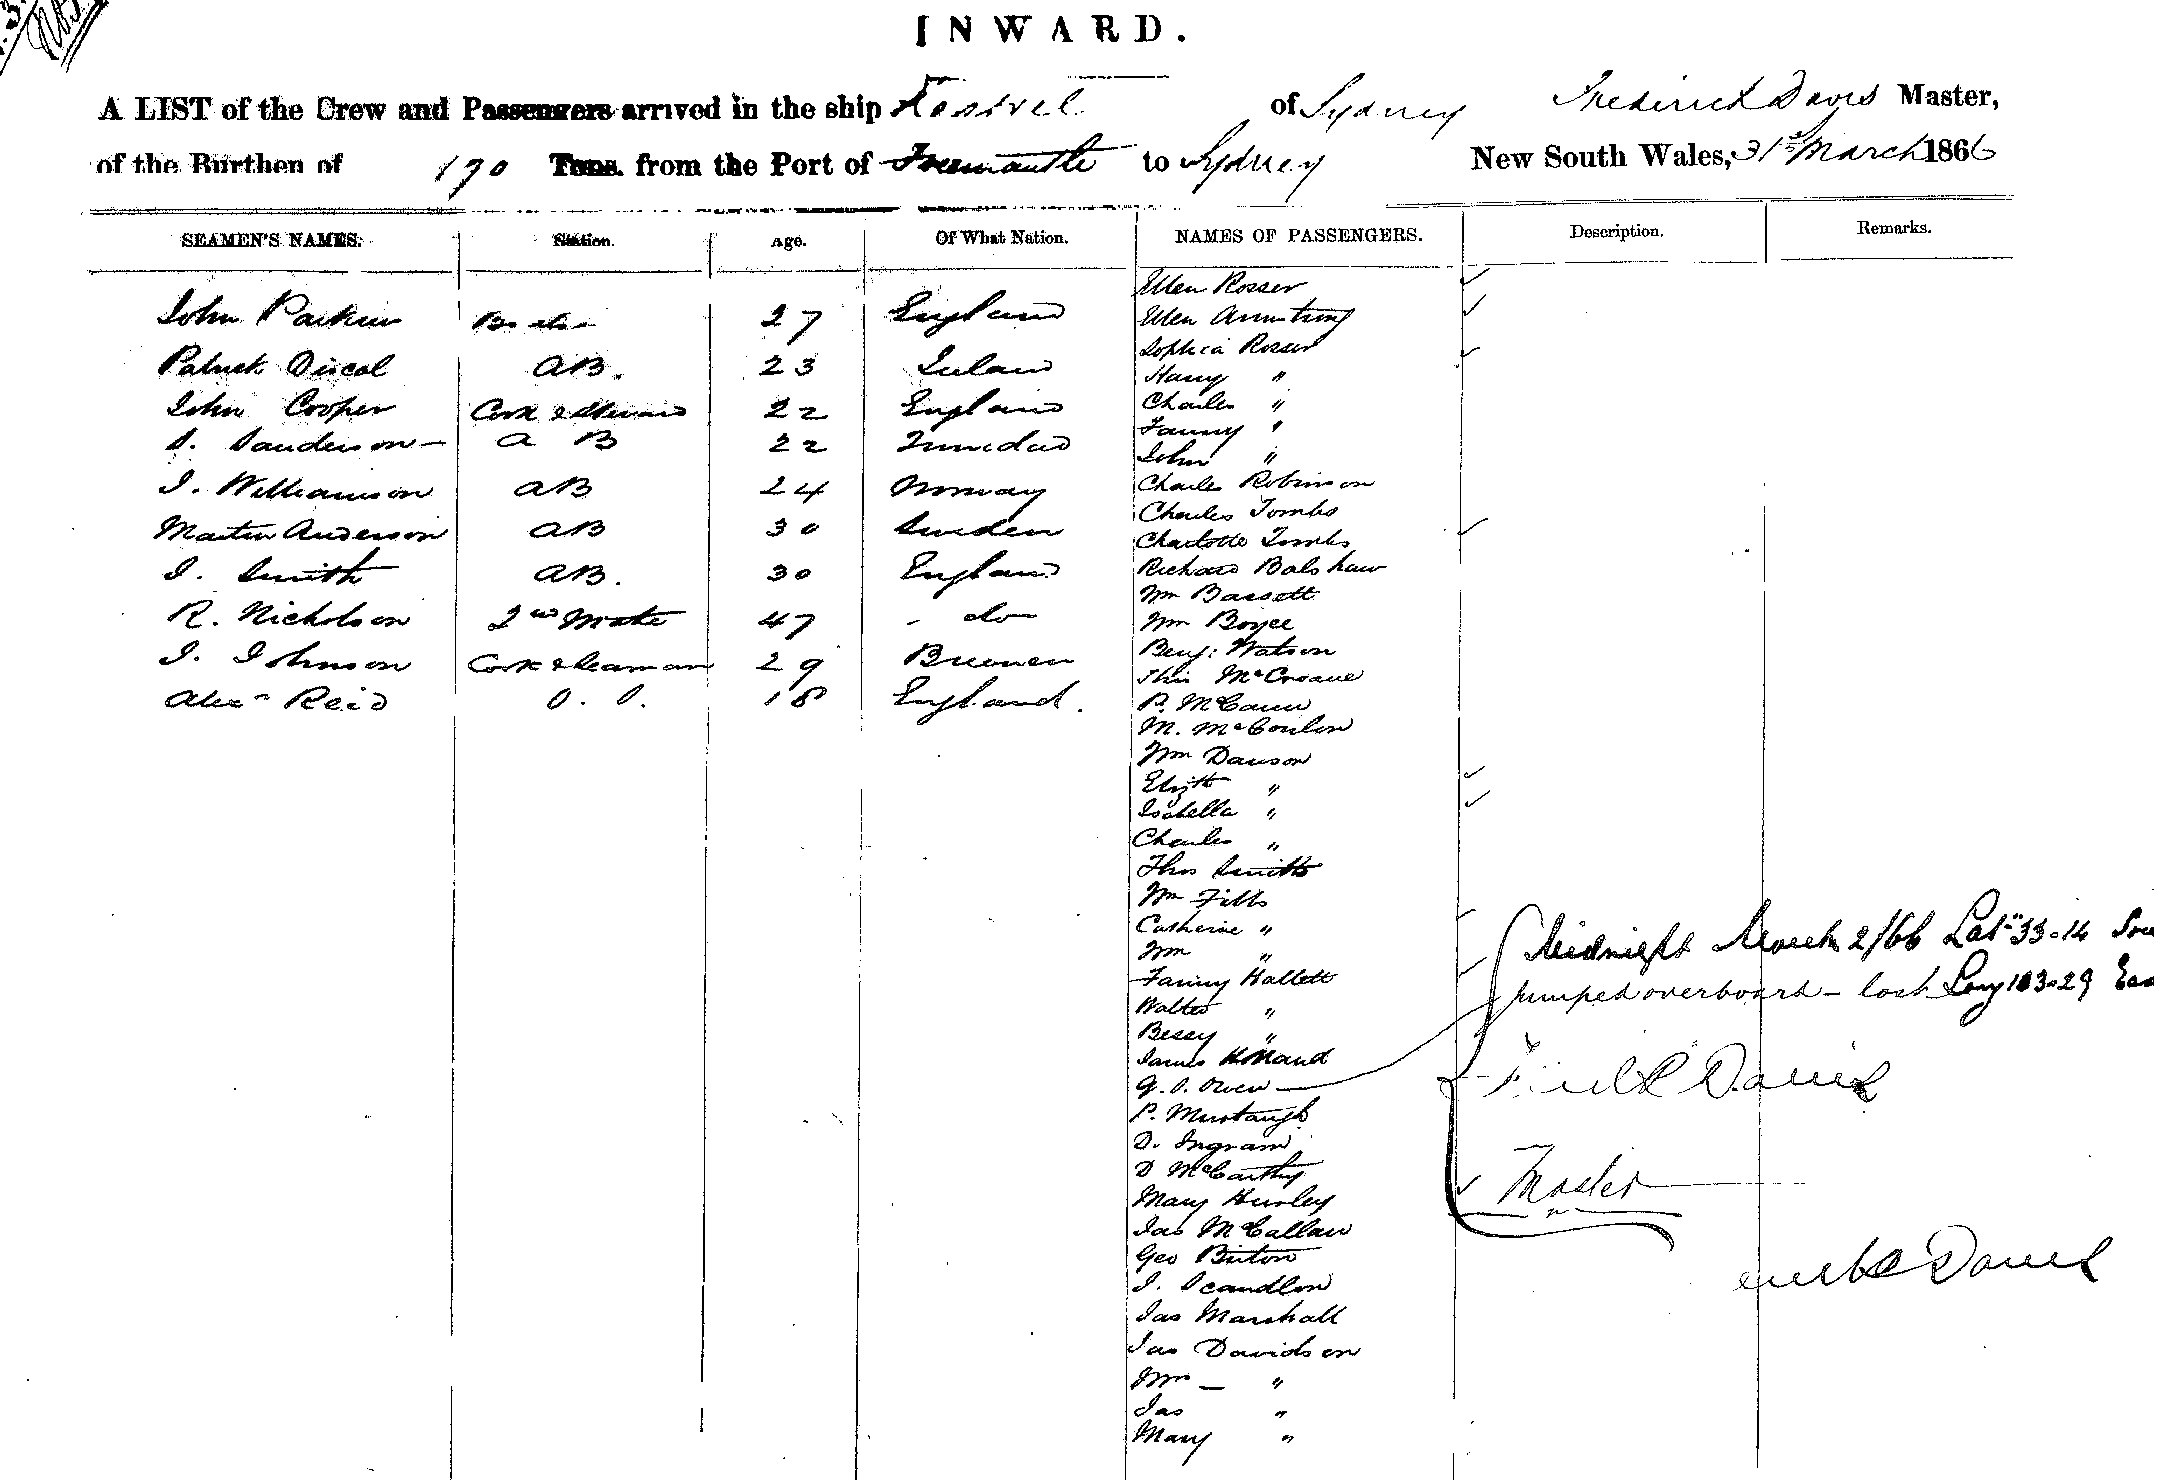 INWARD.
A LIST of the Crew and Passengers arrived in the ship Kestrel of Sydney Frederick Davis Master,
of the Burthen of 190 Tons. from the Port of Fremantle to Sydney New South Wales, 31st March 1866
SEAMEN'S NAMES. Station. Age. Of What Nation. NAMES OF PASSENGERS. Description. Remarks.
John 27 England
Patrick AB. 23
John Cooper Cook & Steward 22 England
S. Sanderson A B 22 Trinidad
J. Williamson AB 24 Norway
Martin Anderson AB 30 Sweden
J. Smith AB. 30 England
R. Nicholson 2nd Mate 47 do
J. Johnson Cook & Seaman 29 Bremen
Alexr Reid O. S. 18 England.
Ellen Rosser
Ellen Armstrong
Sophia Rosser
Harry "
Charles "
Fanny "
John "
Charles Robinson
Charles Tombs
Charlotte Tombs
Richard Balshaw
Wm Bassett
Wm Boyce
Benj: Watson
P. McCann
Wm Dawson
Elizth "
Isabella "
Charles "
Thos Smith
Wm
Catherine "
Wm "
Fanny Hallett
Walter "
Bessy "
James Holland
G. S. Owen
Midnight March 2/66 Latn 33-14
jumped overboard - lost Long 103-29
P. Murtaugh
D. Ingram
D McCarthy
Mary Hurley
Jas McCallan
Geo Burton
J. Scandlon
Jas Marshall
Jas Davidson
Mrs "
Jas "
Mary "
Fredk Davis
Master
Davis